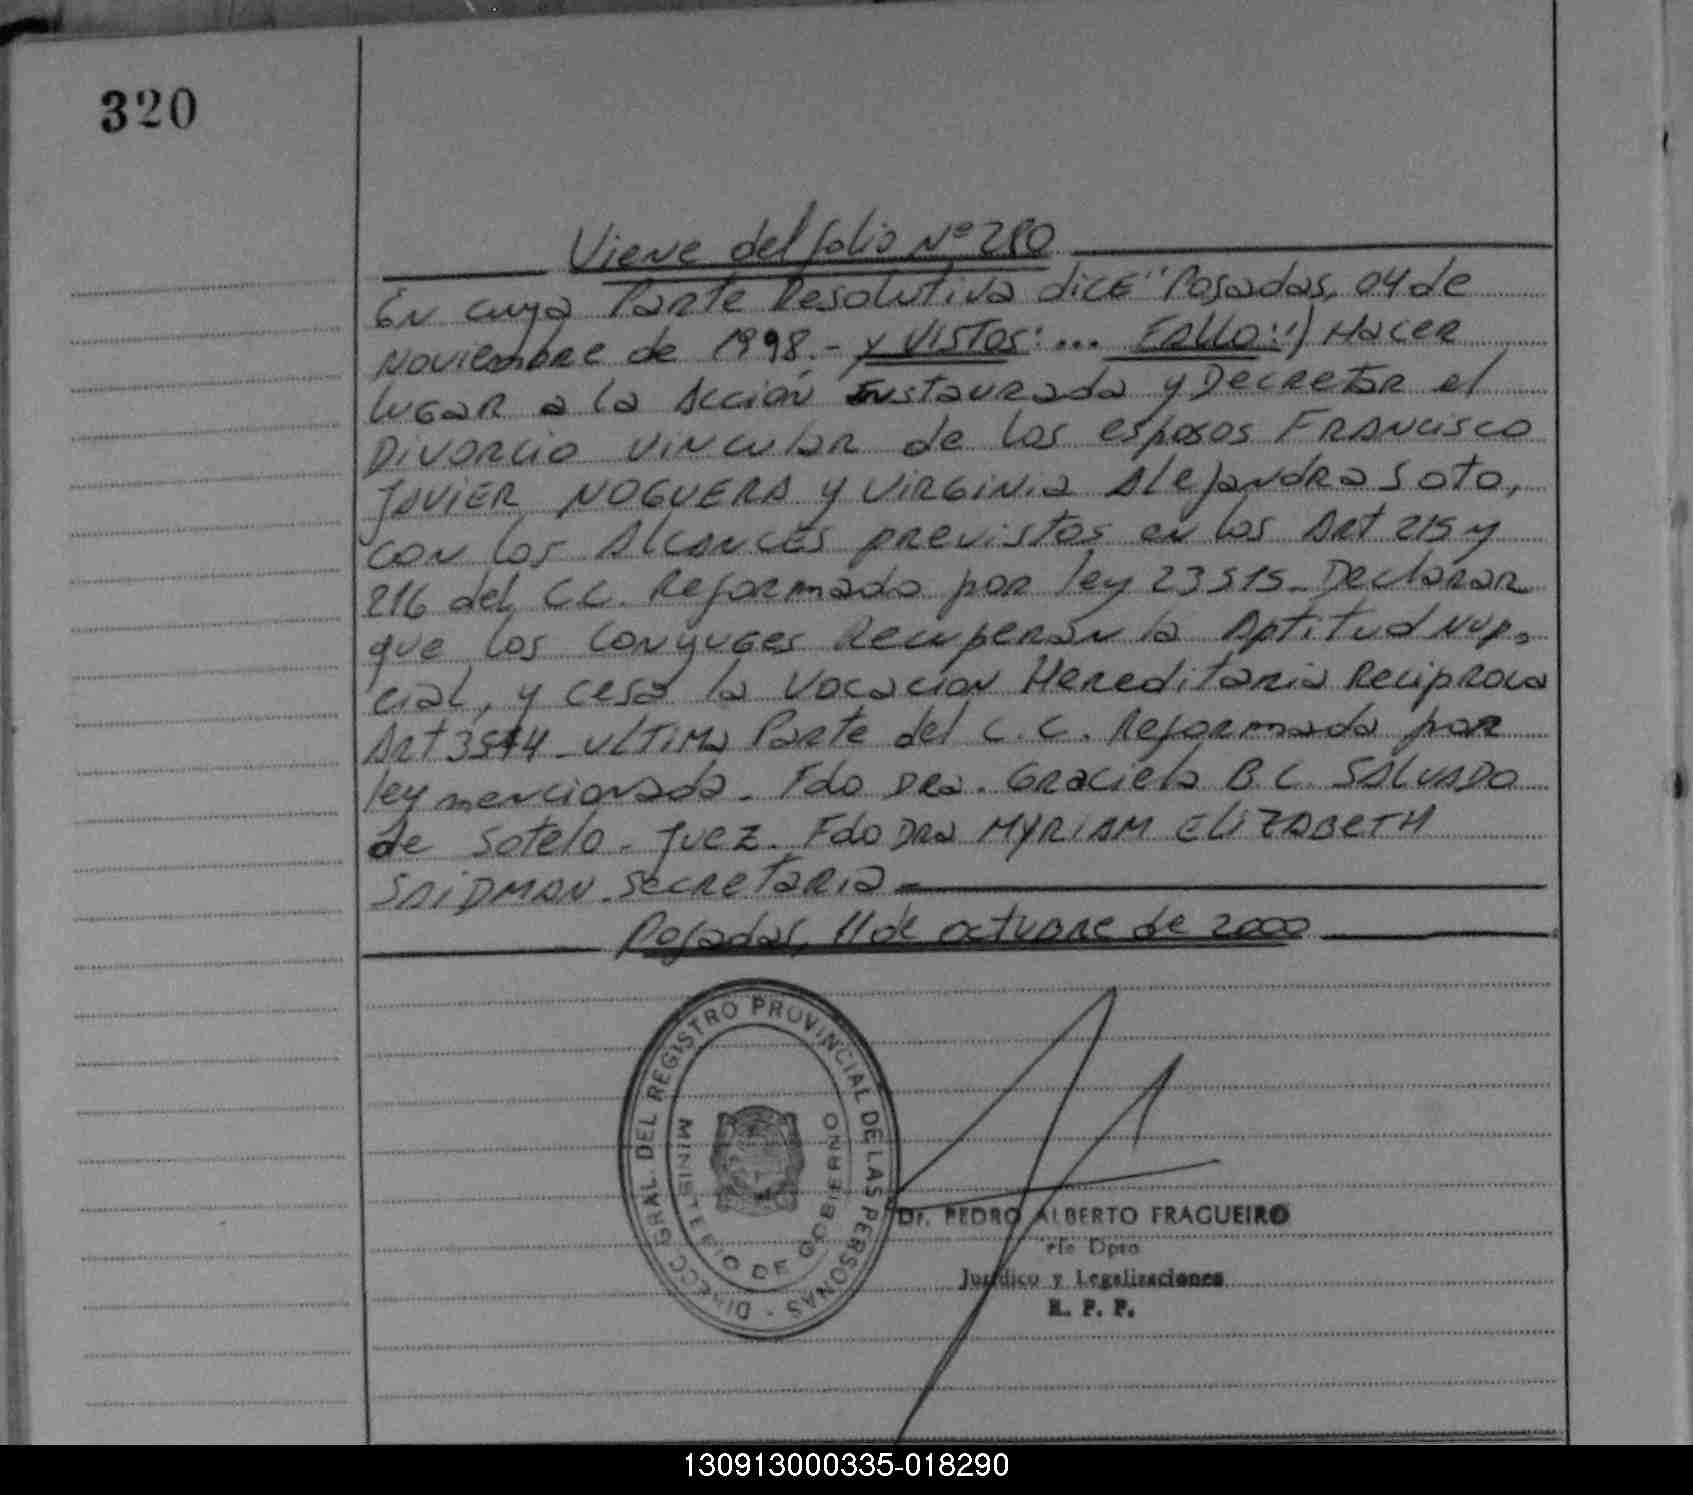 320
Viene del folio Nº 280
En cuya Parte Resolutiva dice "Posadas, 04 de
Noviembre de 1998.- y VISTOS: ... FALLO: 1) Hacer
lugar a la Acción Instaurada y Decretar el
Divorcio vincular de los esposos FRANCISCO
JAVIER NOGUERA y VIRGINIA Alejandra Soto,
con los Alcances previstos en los Art 215 y
216 del C.C. Reformado por ley 23515 - Declarar
que los Conyuges Recuperan la Aptitud Nup-
cial, y cesa la Vocacion Hereditaria Reciproca
Art 3574 - ultima Parte del C.C. Reformado por
ley mencionada. Fdo Dra. Graciela B.C. SALVADO
de Sotelo - Juez. Fdo Dra MYRIAM ELIZABETH
SAIDMAN. Secretaria -
Posadas, 11 de octubre de 2000
DIRECC GRAL. DEL REGISTRO PROVINCIAL DE LAS PERSONAS -
MINISTERIO DE GOBIERNO
Dr. PEDRO ALBERTO FRAGUEIRO
Dpto
Jurídico y Legalizaciones
R. P. P.
130913000335-018290